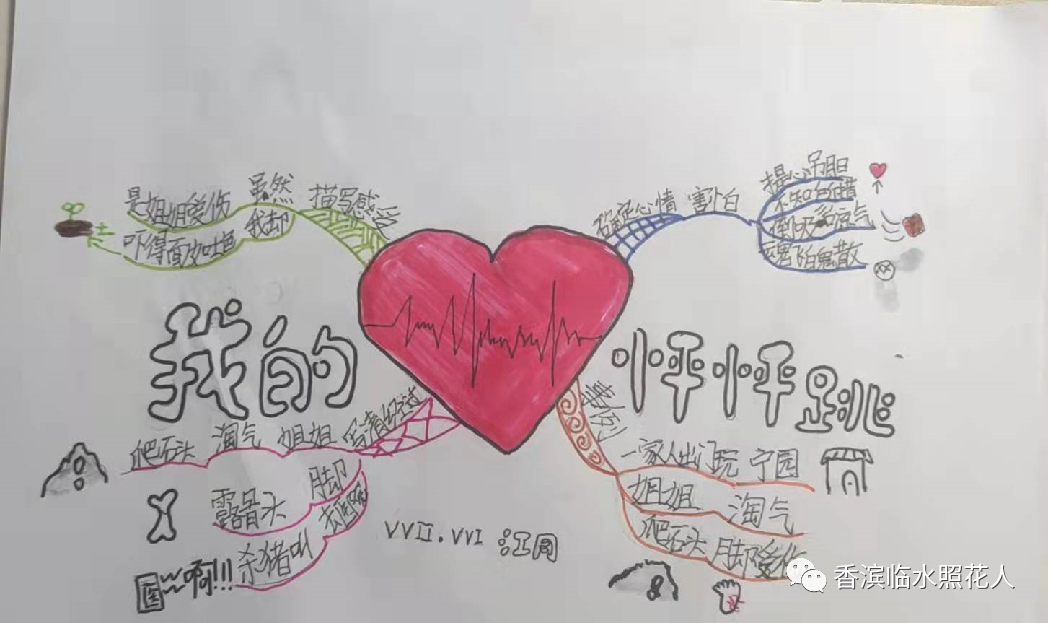 描写感受
虽然
是姐姐受伤
我却
吓得面如吐色
确定心情
害怕
提心吊胆
不知所措
倒吸一口凉气
魂飞魄散
我的心怦怦跳
写清经过
姐姐
淘气
爬石头
脚却
露骨头
去医院
杀猪叫
啊!!!
事例
一家人出门玩
宁园
姐姐
淘气
爬石头
脚却受伤
香滨临水照花人